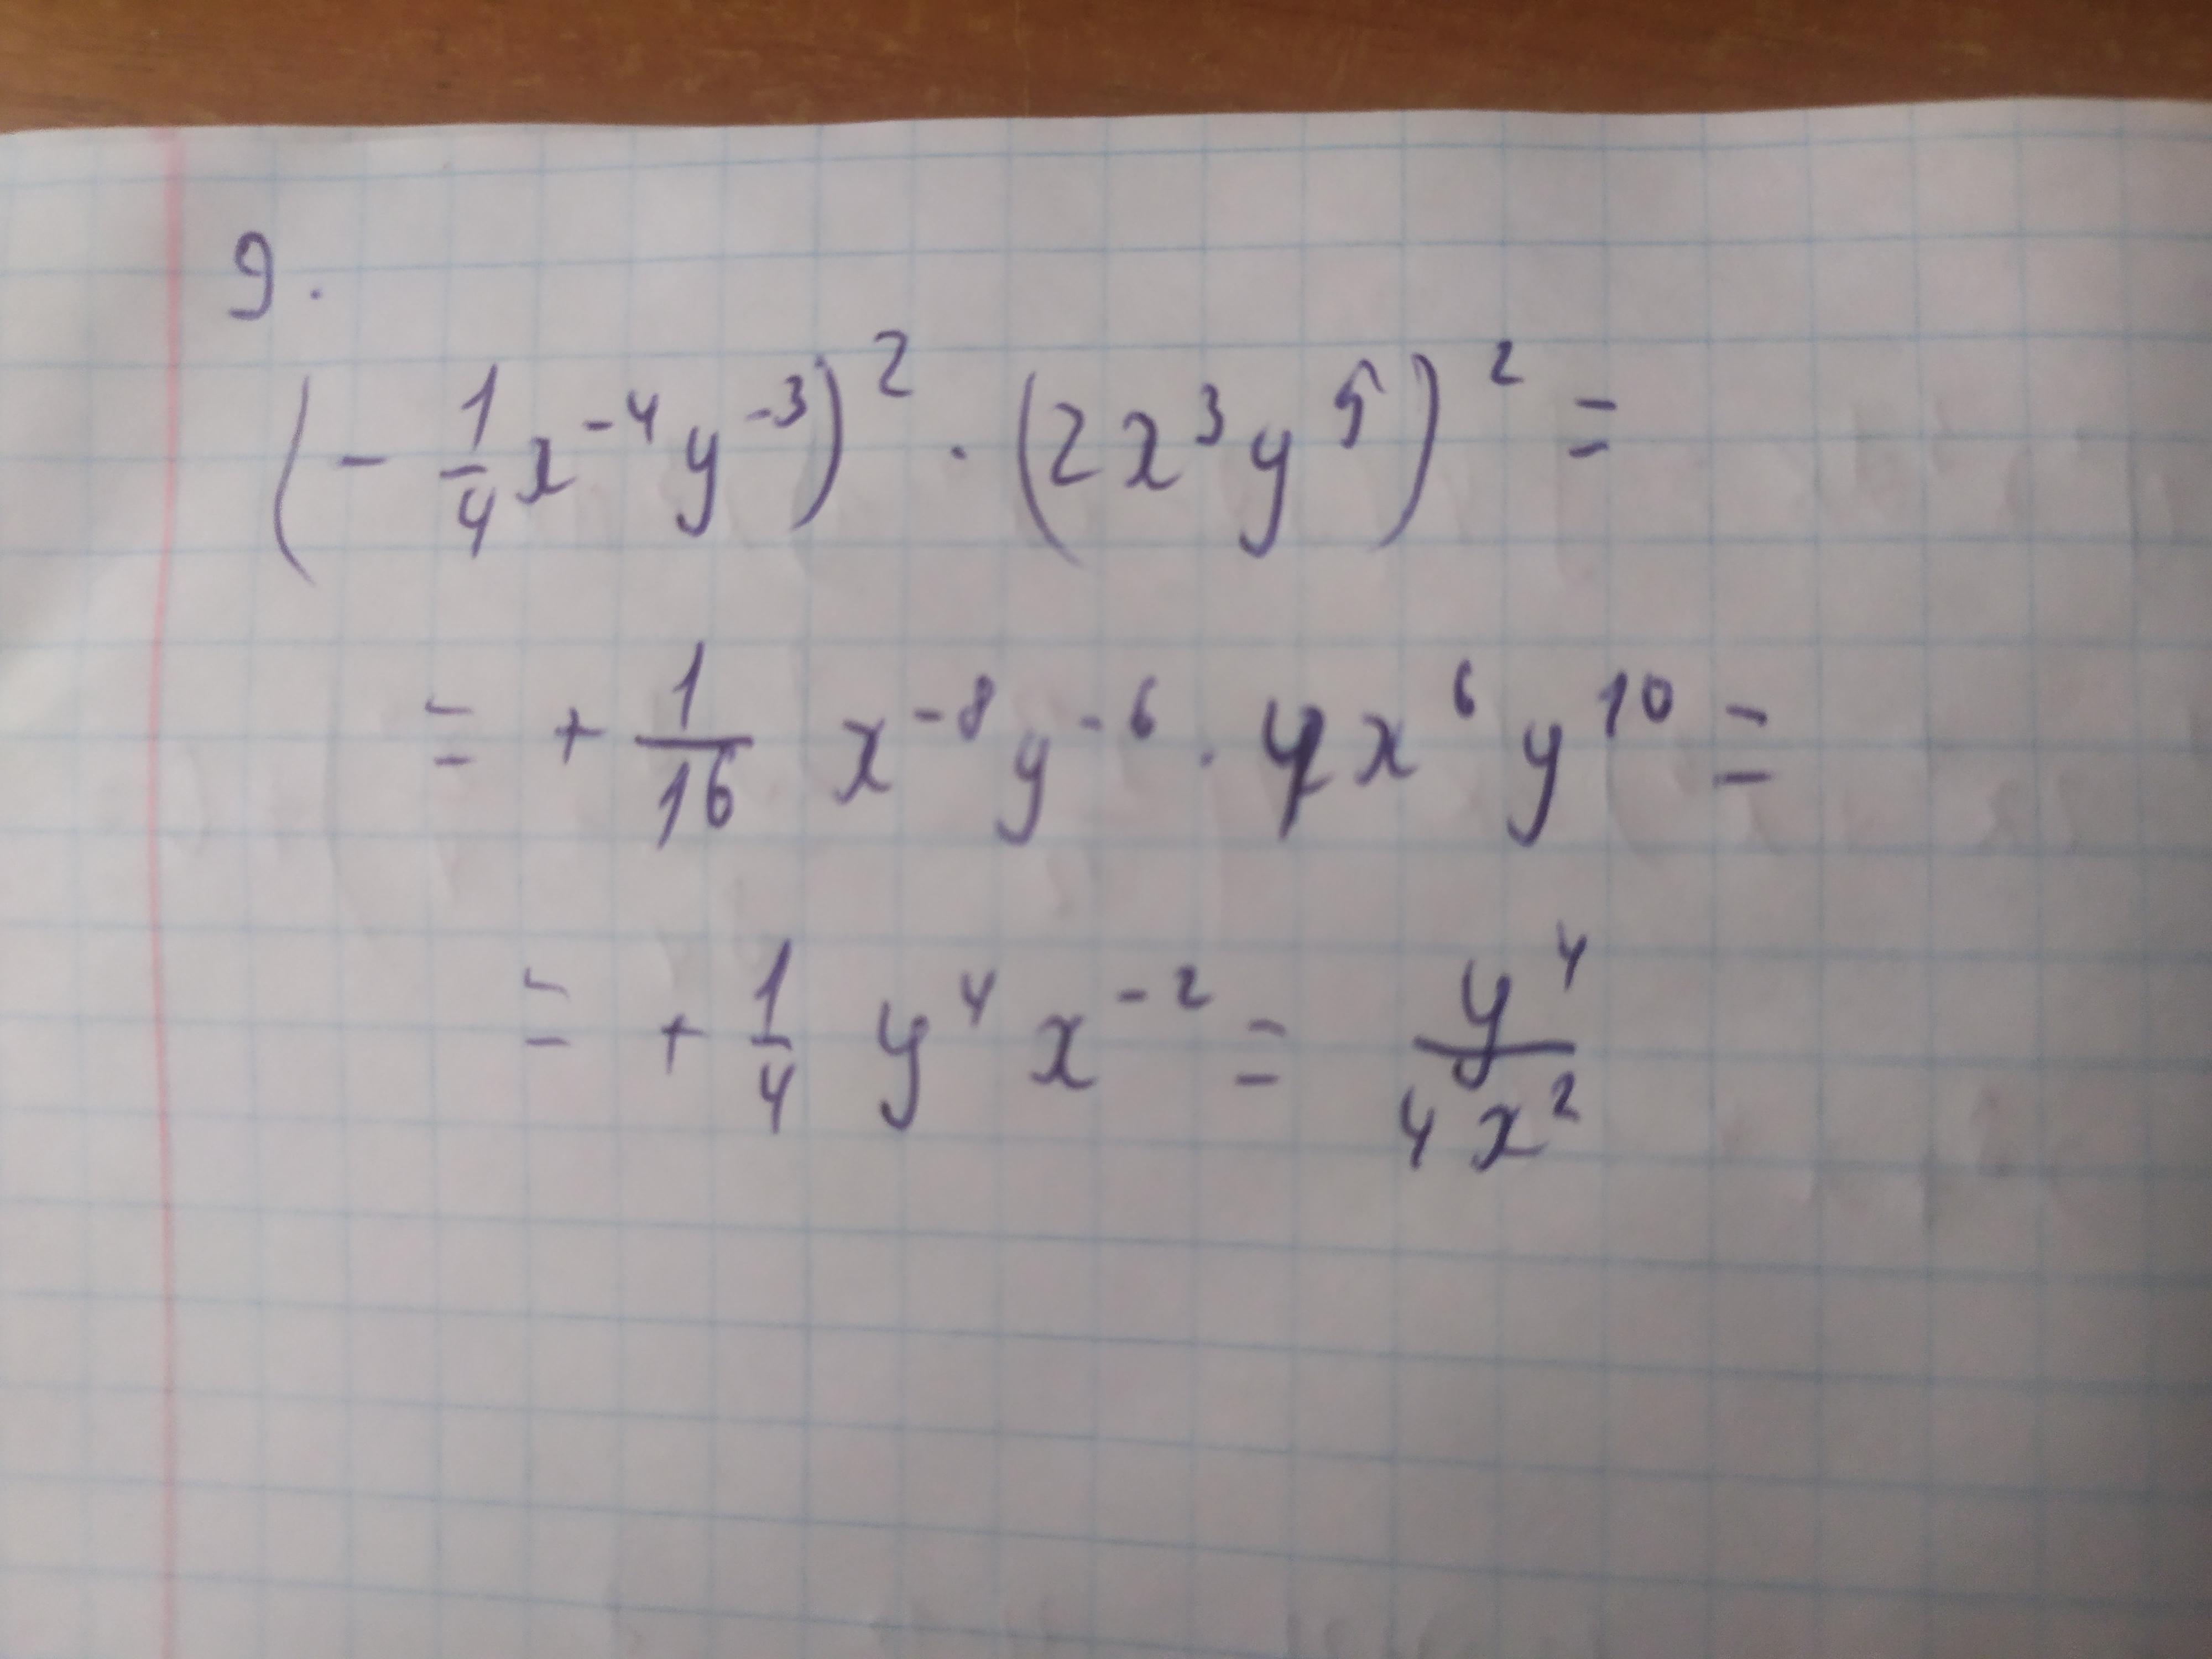 9.
(- 1/4 x⁻⁴ y⁻³)² · (2x³y⁵)² =
= + 1/16 x⁻⁸ y⁻⁶ · 4x⁶ y¹⁰ =
= + 1/4 y⁴ x⁻² = y⁴/4x²